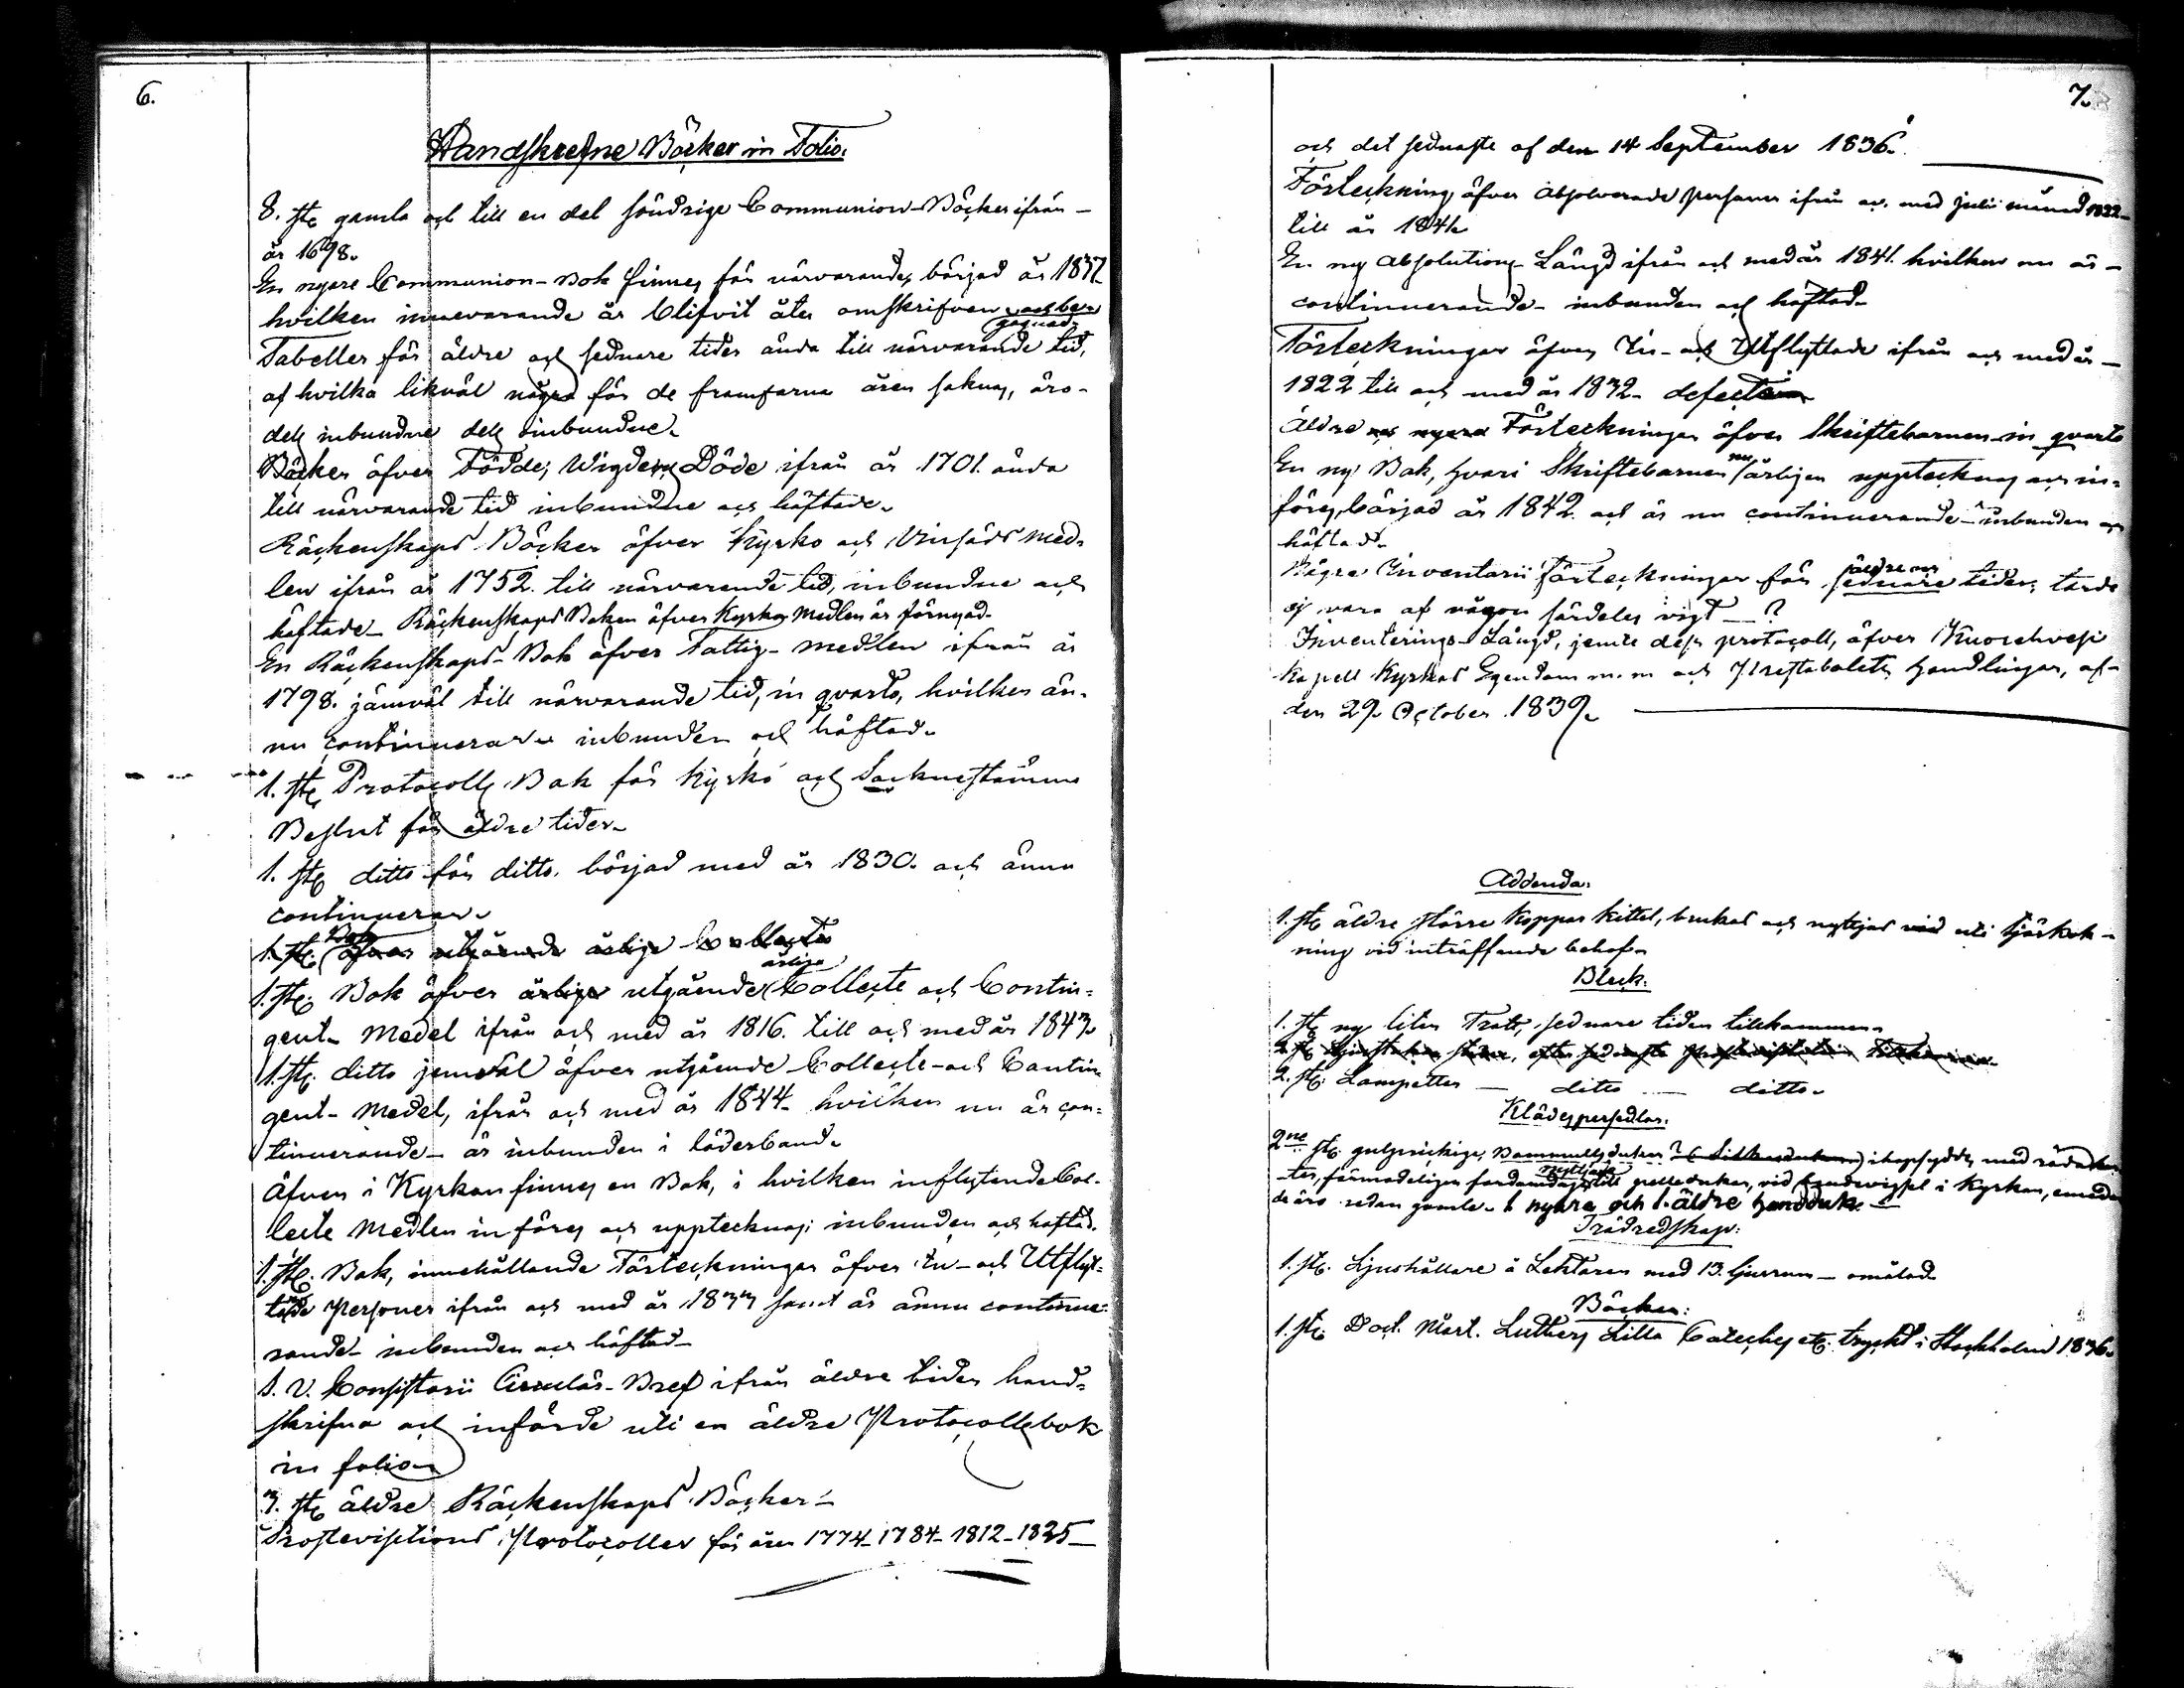 6.
Handskrefne Böcker in Folio.
8. st. gamla och till en del söndrige Communion-Böcker ifrån
år 1698.
En nyare Communion-Bok finnes för närvarande, börjad år 1837
hvilken innevarande år blifvit åter omskrifven
Tabeller för äldre och sednare tider ända till närvarande tid,
af hvilka likväl några för de framfarna åren saknas, äro
dels inbundne dels oinbundne.
Böcker öfver Födde, Wigde och Döde ifrån år 1701. ända
till närvarande tid inbundne och häftade.
Räckenskaps Böcker öfver Kyrko och Vinsäds med-
len ifrån år 1752. till närvarande tid, inbundne och
häftade. Räckenskaps Boken öfver Kyrko Medlen är förnyad.
En Räckenskaps-Bok öfver Fattig-medlen ifrån år
1798. jämväl till närvarande tid, in qvarto, hvilken än-
nu continuerar inbunden och häftad.
1. st. Protocolls Bok för Kyrko och Socknestämmo
Beslut för äldre tider.
1. st. ditto för ditto, börjad med år 1830. och ännu
continuerar.
1. st. Bok öfver utgående årlige Collecte
årlige
1. st. Bok öfver årlige utgående Collecte och Contin-
gent-Medel ifrån och med år 1816. till och med år 1843
1. st. ditto jemväl öfver utgående Collecte- och Contin-
gent-Medel, ifrån och med år 1844 hvilken nu är con-
tinuerande är inbunden i läderband.
Äfven i Kyrkan finnes en Bok, i hvilken inflytende Col-
lecte Medlen införes och upptecknas: inbunden och häftad.
1. st. Bok, innehållande Förteckningar öfver In- och Utflyt-
tade Personer ifrån och med år 1833 samt är ännu continue-
rande inbunden och häftad
S. V. Consistorii Circulär-Bref ifrån äldre tider hand-
skrifna och införde uti en äldre Protocollsbok
in folio
3. st. äldre Räckenskaps Böcker
Prostevisitions Protocoller för åren 1774-1784-1812-1825
7.
och det sednaste af den 14 September 1836.
Förteckning öfver absolverade personer ifrån och med julii månad 1822
till år 1841
En ny Absolutions-Längd ifrån och med år 1841. hvilken nu är
continuerande inbunden och häftad
Förteckningar öfver In- och Utflyttade ifrån och med år
1822 till och med år 1832 defect
Äldre och nyare Förteckningar öfver Skriftebarnen in qvarto
En ny Bok, hvari Skriftebarnen nu årligen upptecknas och in-
föres, börjad år 1842. och är nu continuerande inbunden och
häftad.
Några Inventarii Förteckningar för äldre och sednare tider, torde
ej vara af någon särdeles vigt ?
Inventerings-Längd, jemte dess protocoll, öfver Kuolehvesi
Kapell Kyrkas Egendom m.m och Prestabolets Handlingar, af
den 29 October 1839.
Addenda:
1. st. äldre större Koppar kittel, brukas och nyttjas vid uti tjärkok-
ning vid inträffande behof.
Bleck.
1. st. ny liten Tratt, sednare tiden tillkommen.
2. st. Lampetter ditto ditto.
Klädespersedlar.
2ne st. gulprickige, Bommulls dukar ? ihopsydde, med röda
nyttjade
de äro redan gamla. 1 nyare och 1. äldre handduk
Trädredskap:
1. st. Ljushållare å Lektaren med 13. ljusrum omålad
Böcker:
1. st. Doct. Mart. Luthers Lilla Cateches etc. tryckt i Stockholm 1836.